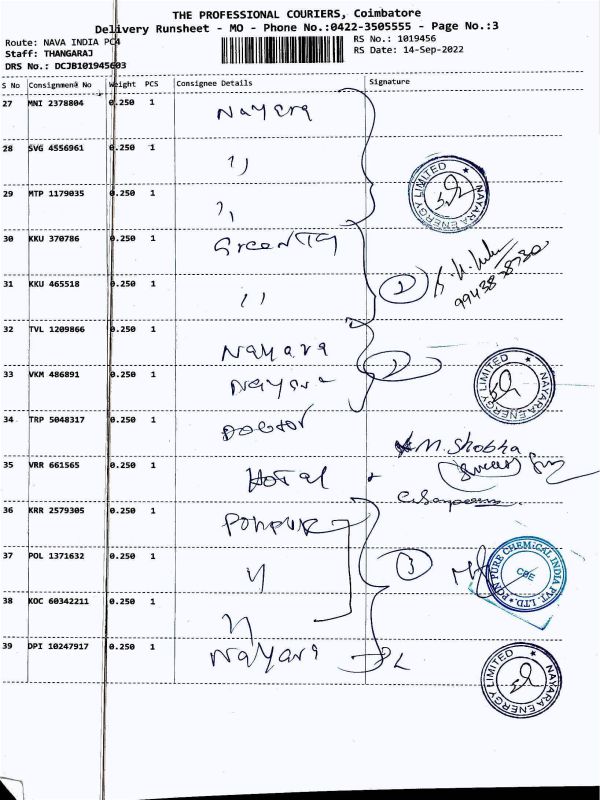 THE PROFESSIONAL COURIERS, Coimbatore
Delivery Runsheet - MO - Phone No.:0422-3505555 - Page No.:3
Route: NAVA INDIA PC4
RS No.: 1019456
Staff: THANGARAJ
RS Date: 14-Sep-2022
DRS No.: DCJB101945603
S No Consignment No Weight PCS Consignee Details Signature
27 MNI 2378804 0.250 1 Nayara
28 SVG 4556961 0.250 1 ,,
29 MTP 1179035 0.250 1 ,,
NAYARA ENERGY LIMITED
30 KKU 370786 0.250 1
31 KKU 465518 0.250 1 ,, 2
32 TVL 1209866 0.250 1 Nayara
33 VKM 486891 0.250 1 Nayara
NAYARA ENERGY LIMITED
34 TRP 5048317 0.250 1 Doctor
M. Shobha
35 VRR 661565 0.250 1 Hotal
36 KRR 2579305 0.250 1 Ponpure
37 POL 1371632 0.250 1 ,, 3
PON PURE CHEMICAL INDIA PVT. LTD.
CBE
38 KOC 60342211 0.250 1 ,,
39 DPI 10247917 0.250 1 Nayara
NAYARA ENERGY LIMITED